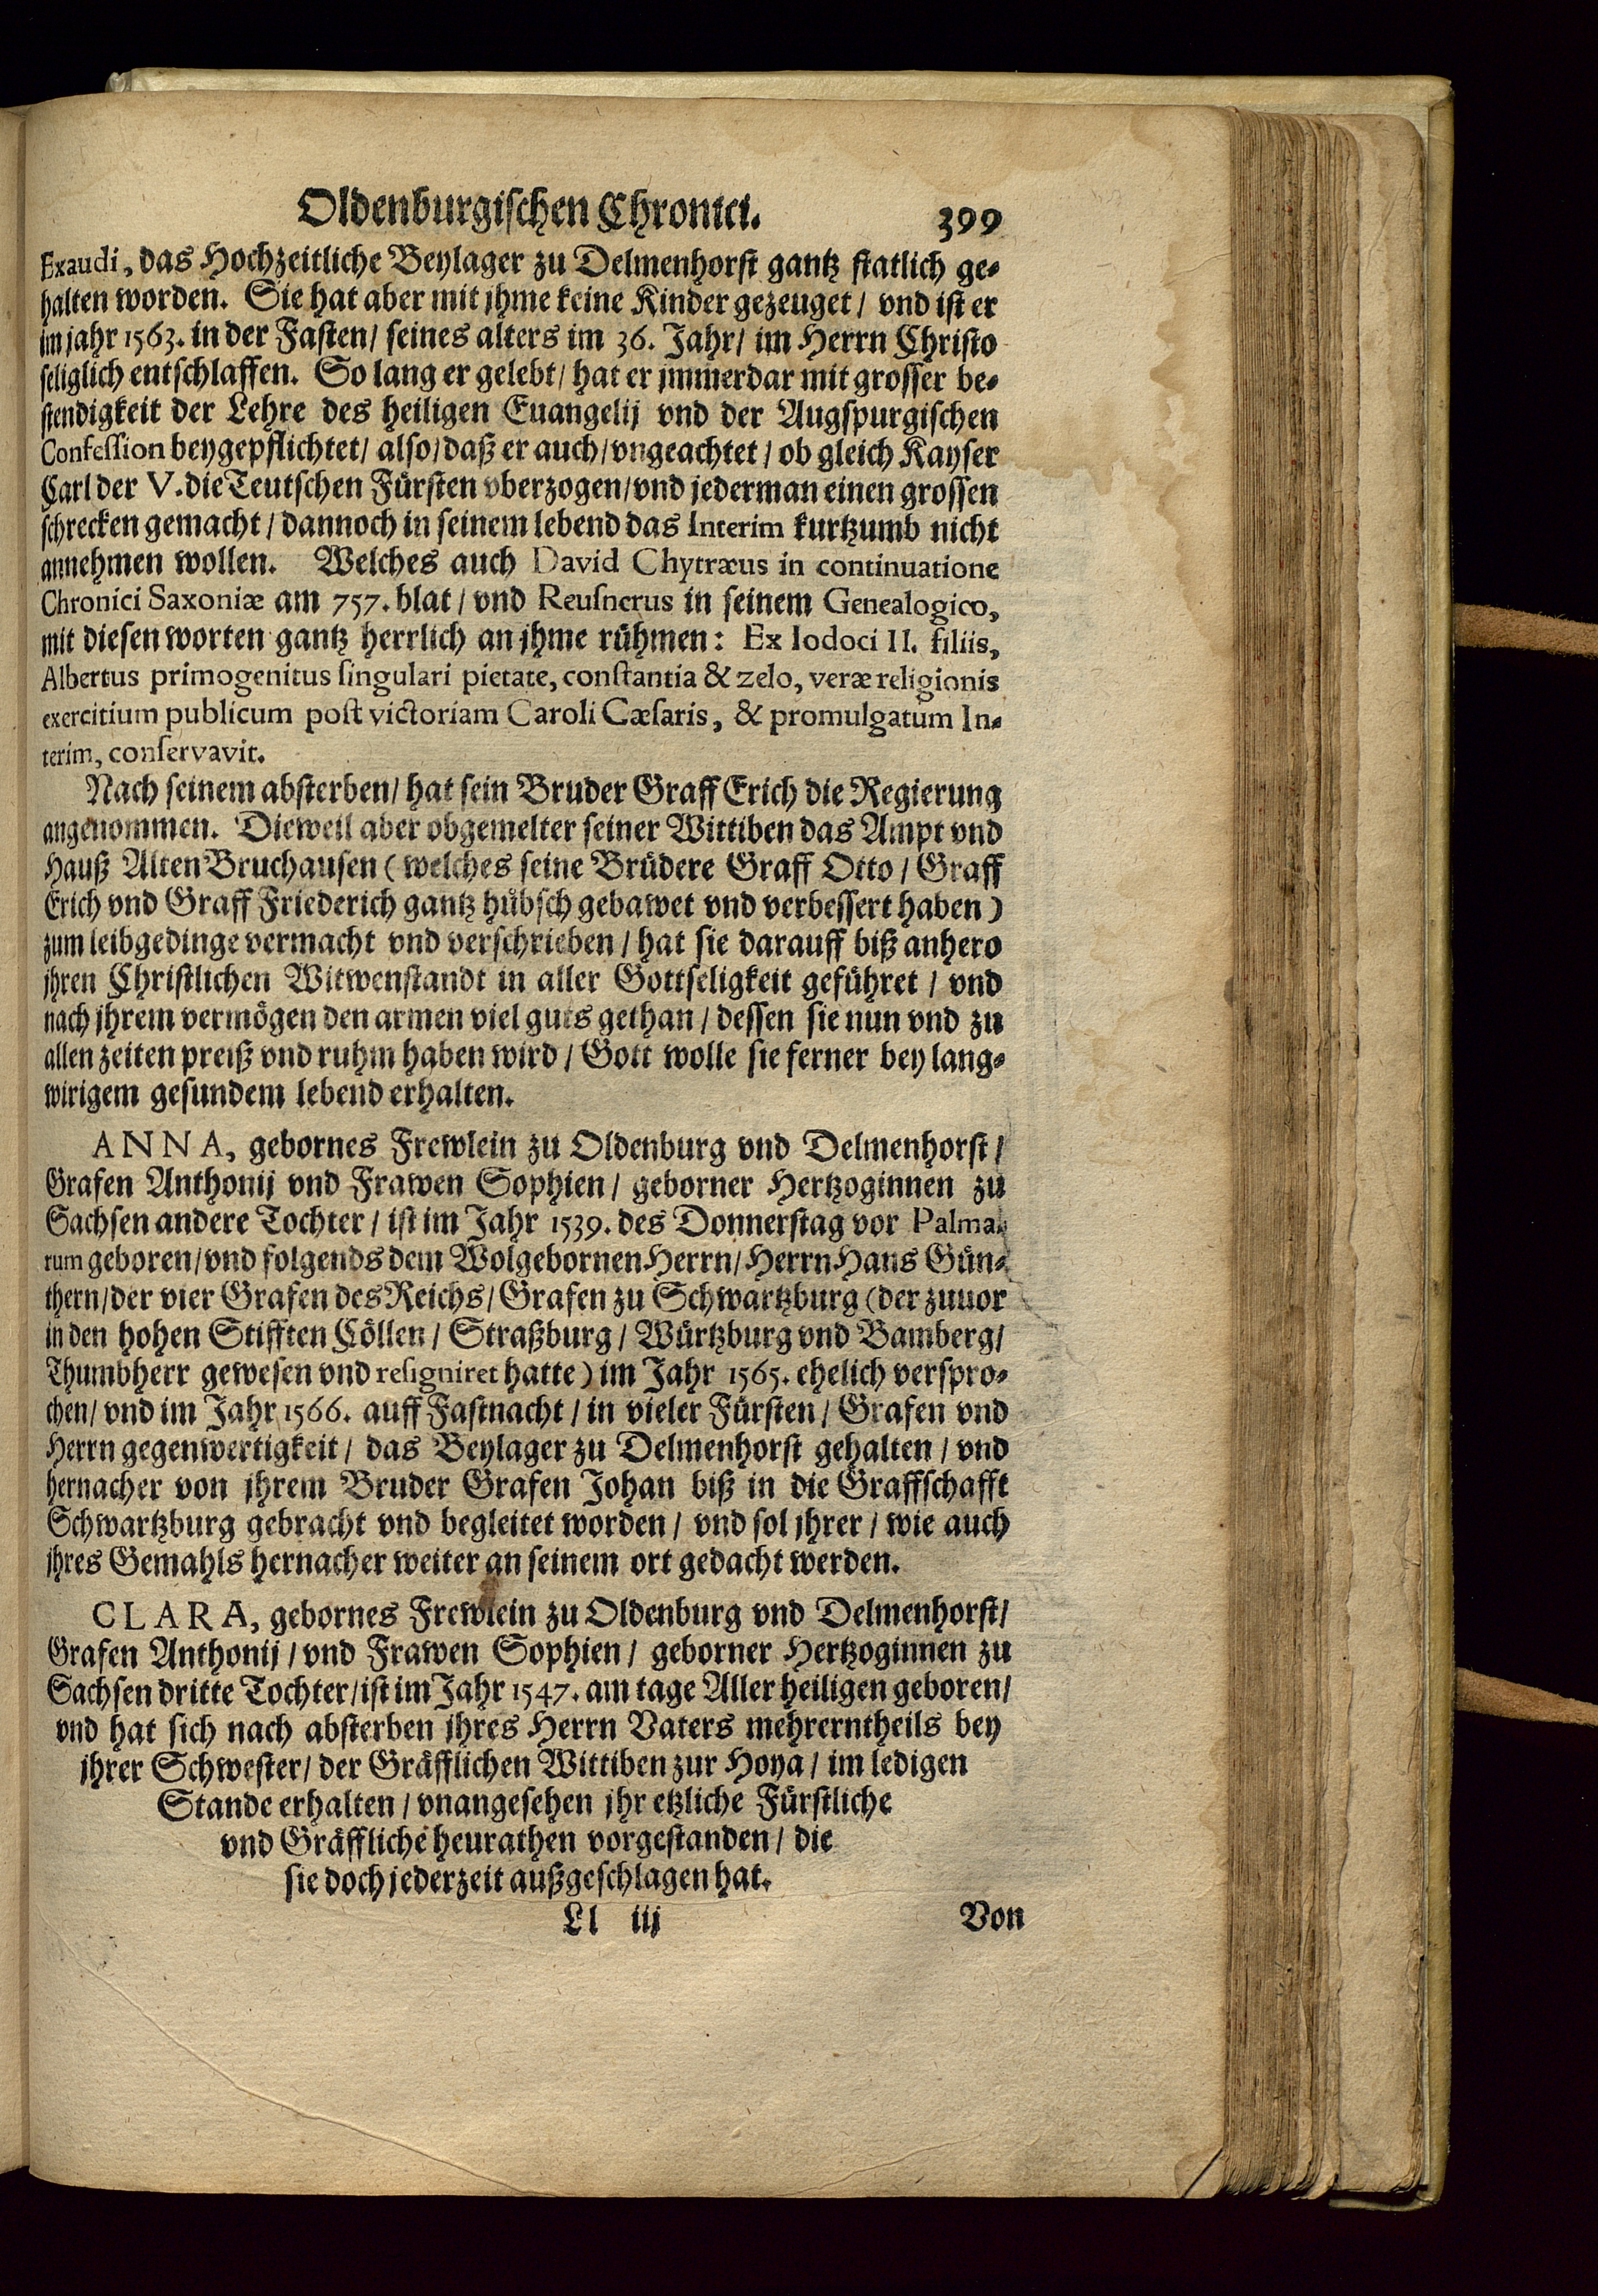 Oldenburgischen Chronici. 399
Exaudi, das Hochzeitliche Beylager zu Delmenhorst gantz statlich ge-
halten worden. Sie hat aber mit jhme keine Kinder gezeuget / vnd ist er
im jahr 1563. in der Fasten / seines alters im 36. Jahr / im Herrn Christo
seliglich entschlaffen. So lang er gelebt / hat er jmmerdar mit grosser be-
stendigkeit der Lehre des heiligen Euangelij vnd der Augspurgischen
Confession beygepflichtet / also / daß er auch / vngeachtet / ob gleich Kayser
Carl der V. die Teutschen Fürsten vberzogen / vnd jederman einen grossen
schrecken gemacht / dannoch in seinem lebend das Interim kurtzumb nicht
annehmen wollen. Welches auch David Chytræus in continuatione
Chronici Saxoniæ am 757. blat / vnd Reusnerus in seinem Genealogico,
mit diesen worten gantz herrlich an jhme rühmen: Ex Iodoci II. filiis,
Albertus primogenitus singulari pietate, constantia & zelo, veræ religionis
exercitium publicum post victoriam Caroli Cæsaris, & promulgatum In-
terim, conservavit.
Nach seinem absterben / hat sein Bruder Graff Erich die Regierung
angenommen. Dieweil aber obgemelter seiner Wittiben das Ampt vnd
Hauß Alten Bruchausen (welches seine Brüdere Graff Otto / Graff
Erich vnd Graff Friederich gantz hübsch gebawet vnd verbessert haben)
zum leibgedinge vermacht vnd verschrieben / hat sie darauff biß anhero
jhren Christlichen Witwenstandt in aller Gottseligkeit geführet / vnd
nach jhrem vermögen den armen viel guts gethan / dessen sie nun vnd zu
allen zeiten preiß vnd ruhm haben wird / Gott wolle sie ferner bey lang-
wirigem gesundem lebend erhalten.
ANNA, gebornes Frewlein zu Oldenburg vnd Delmenhorst /
Grafen Anthonij vnd Frawen Sophien / geborner Hertzoginnen zu
Sachsen andere Tochter / ist im Jahr 1539. des Donnerstag vor Palma-
rum geboren / vnd folgends dem Wolgebornen Herrn / Herrn Hans Gün-
thern / der vier Grafen des Reichs / Grafen zu Schwartzburg (der zuuor
in den hohen Stifften Cöllen / Straßburg / Würtzburg vnd Bamberg /
Thumbherr gewesen vnd resigniret hatte) im Jahr 1565. ehelich verspro-
chen / vnd im Jahr 1566. auff Fastnacht / in vieler Fürsten / Grafen vnd
Herrn gegenwertigkeit / das Beylager zu Delmenhorst gehalten / vnd
hernacher von jhrem Bruder Grafen Johan biß in die Graffschafft
Schwartzburg gebracht vnd begleitet worden / vnd sol jhrer / wie auch
jhres Gemahls hernacher weiter an seinem ort gedacht werden.
CLARA, gebornes Frewlein zu Oldenburg vnd Delmenhorst /
Grafen Anthonij / vnd Frawen Sophien / geborner Hertzoginnen zu
Sachsen dritte Tochter / ist im Jahr 1547. am tage Aller heiligen geboren /
vnd hat sich nach absterben jhres Herrn Vaters mehrerntheils bey
jhrer Schwester / der Gräfflichen Wittiben zur Hoya / im ledigen
Stande erhalten / vnangesehen jhr etzliche Fürstliche
vnd Gräffliche heurathen vorgestanden / die
sie doch jederzeit außgeschlagen hat.
Ll iij Von